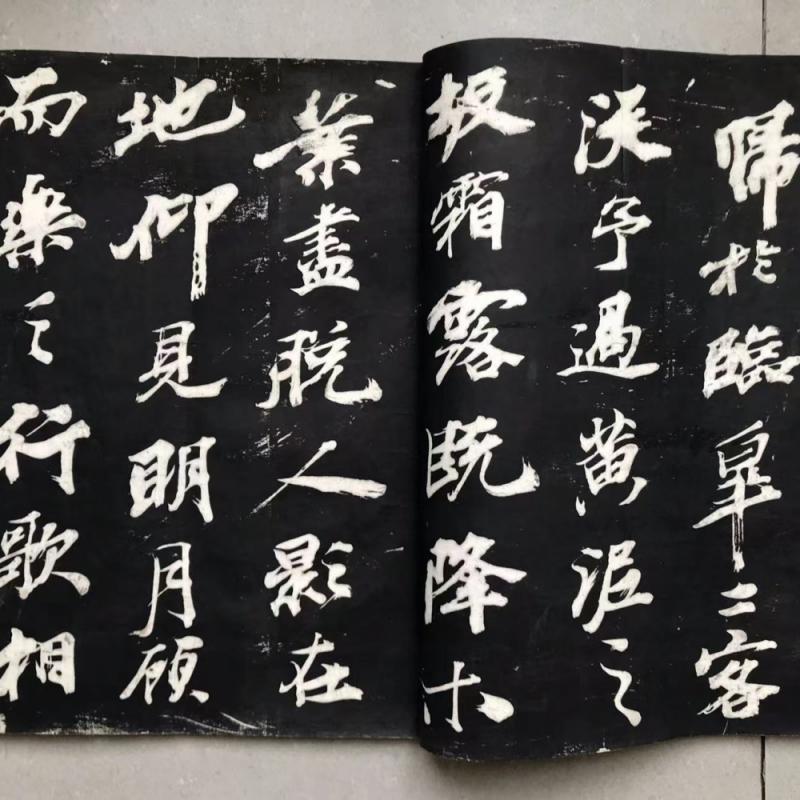 歸於臨皋二客
從予過黄泥之
坂霜露既降木
葉盡脱人影在
地仰見明月顧
而樂之行歌相